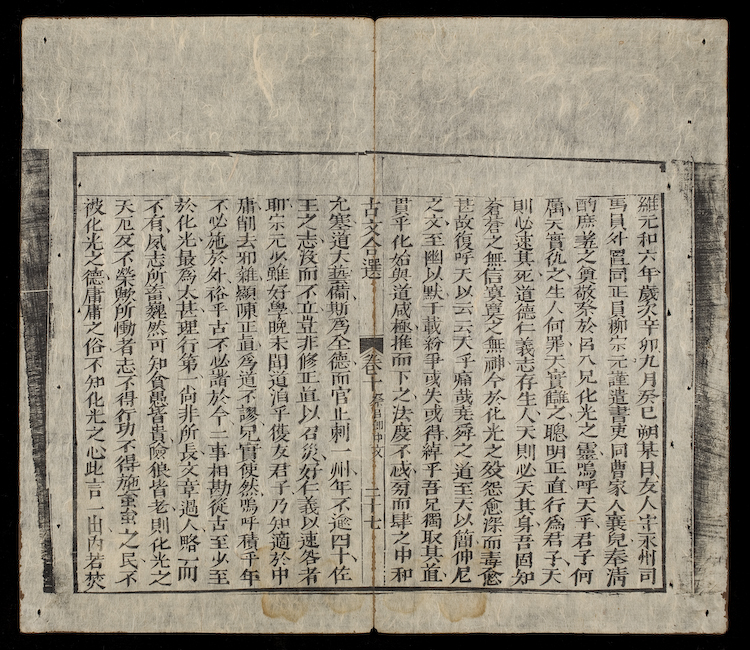 維元和六年歲次辛卯九月癸巳朔某日友人守永州司
馬員外置同正員柳宗元謹遣書吏同曹家人襄兒奉清
酌庶羞之奠敬祭於呂八兄化光之靈嗚呼天乎君子何
厲天實仇之生人何罪天實讎之聰明正直行為君子天
則必速其死道德仁義志存生人天則必夭其身吾固知
蒼蒼之無信莫莫之無神今於化光之歿怨愈深而毒愈
甚故復呼天以云云天乎痛哉堯舜之道至大以簡仲尼
之文至幽以默千載紛爭或失或得倬乎吾兄獨取其直
貫乎化始與道咸極推而下之法度不忒旁而肆之中和
古文合選 卷十 祭呂衡州文 二十七
允塞道大藝備斯為全德而官止刺一州年不逾四十佐
王之志沒而不立豈非修正直以召災好仁義以速咎者
耶宗元幼雖好學晚未聞道洎乎獲友君子乃知適於中
庸削去邪雜顯陳正直為道不謬兄實使然嗚呼積乎中
不必施於外裕乎古不必諧於今二事相期從古至少至
於化光最為太甚理行第一尚非所長文章過人略而
不有夙志所蓄巍然可知貪愚皆貴險狠皆老則化光之
夭厄反不榮歟所慟者志不得行功不得施蚩蚩之民不
被化光之德庸庸之俗不知化光之心此言一出內若焚